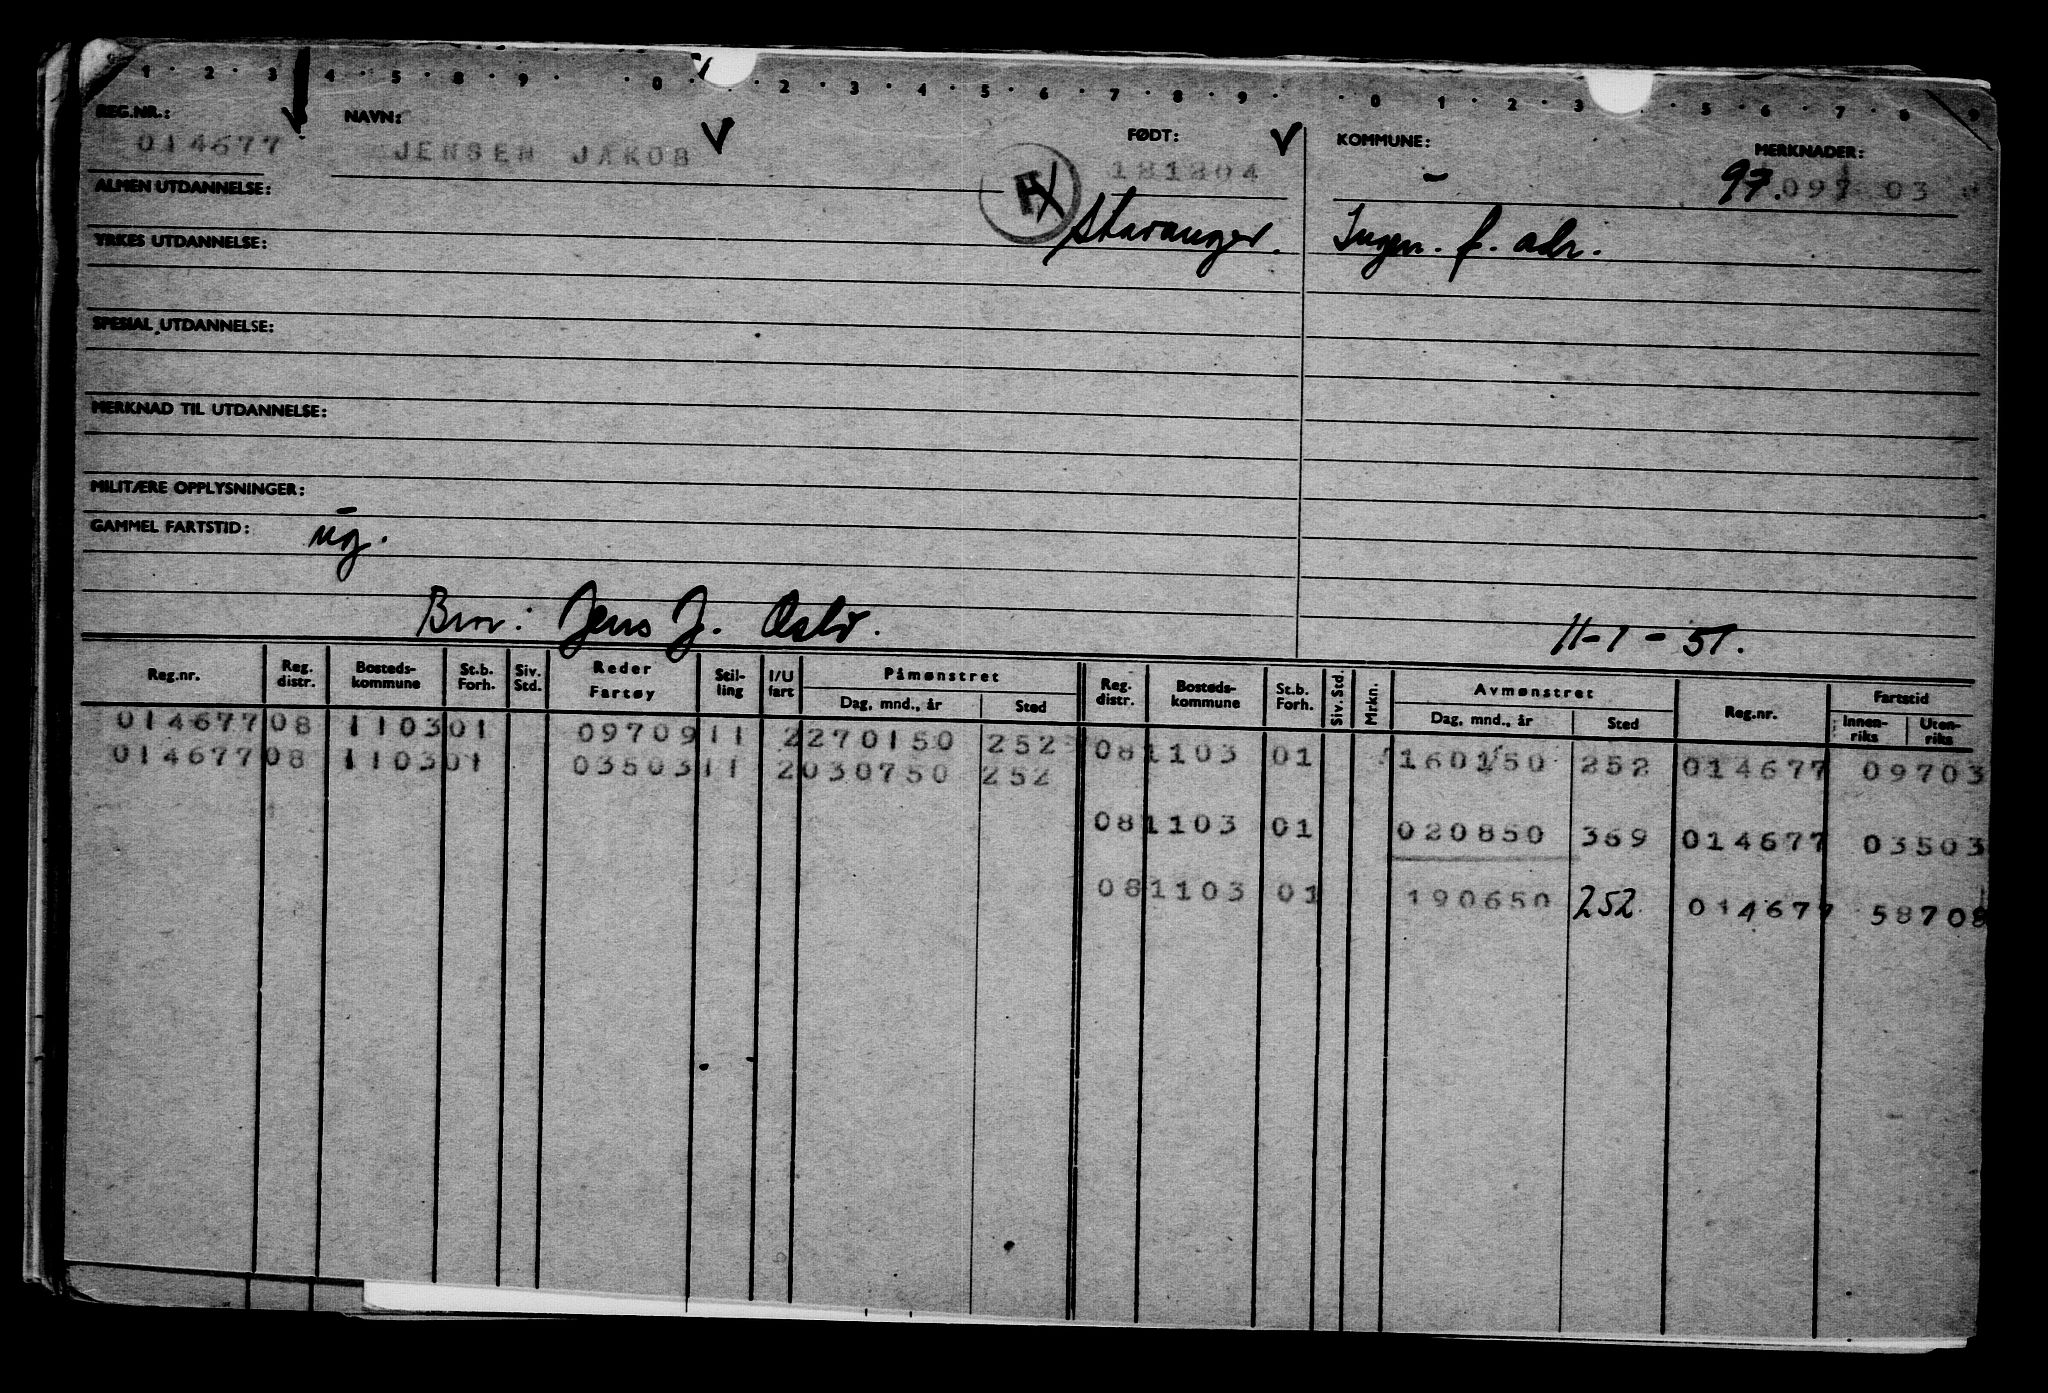 1 · 2 · 3 4 · 5 · 8 · 9 · · 0 · · 2 · 3 · 4 · 5 · 6 · 7 · 8 · 9 · · 0 · 1 · 2 · 3 · 5 · 6 · 7 · 8 · 9
REG.NR.: NAVN: FØDT: KOMMUNE: MERKNADER:
014677 JENSEN JAKOB 181204 - 97.097 03
ALMEN UTDANNELSE: Stavanger. Ingen. f. adr.
YRKES UTDANNELSE:
SPESIAL UTDANNELSE:
MERKNAD TIL UTDANNELSE:
MILITÆRE OPPLYSNINGER: -
GAMMEL FARTSTID: ug.
Bror: Jens J. Oslo. 11-1-51.
Reg.nr. Reg. distr. Bosteds-kommune St.b. Forh. Siv. Std. Reder Fartøy Stil-ling I/U fart Påmønstret Dag, mnd., år Sted Reg. distr. Bosteds-kommune St.b. Forh. Siv. Std. Mrkn. Avmønstret Dag, mnd., år Sted Reg.nr. Fartstid Innen-riks Uten-riks
014677 08 1103 01 09709 11 2 270150 252 08 1103 01 160150 252 014677 09703
014677 08 1103 01 03503 11 2 030750 252
08 1103 01 020850 369 014677 03503
08 1103 01 190650 252 014677 58708